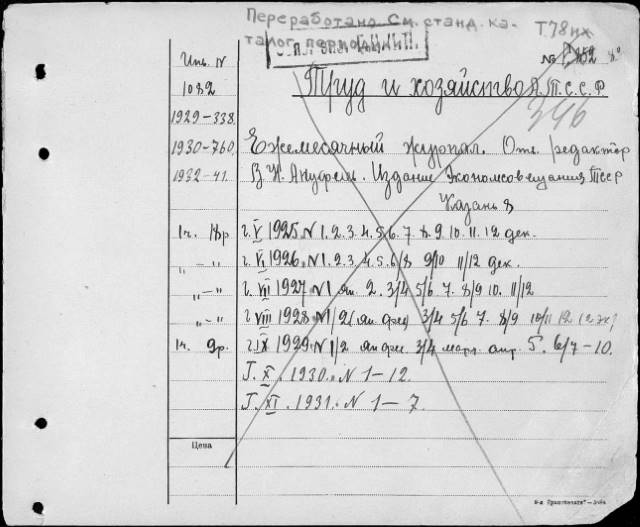 Переработано См. станд. ка-
талог периодики
Т78их
№ 152 8°
Инв. N
1082
Труд и хозяйство А.Т.С.С.Р
346
1929-338.
1930-760.
Ежемесячный журнал. Отв. редактор
1932-41.
Издание Экономсовещания ТССР
Казань 8
1ч. 18р г. V 1925. N 1. 2. 3. 4. 5. 6. 7. 8. 9. 10. 11. 12 дек.
„ – „ г. VI 1926. N 1. 2. 3. 4. 5. 6/8 9/10 11/12 дек.
„ – „ г. VII 1927 N 1 ян 2. 3/4 5/6 7. 8/9 10. 11/12
„ – „ г. VIII 1928 N 1/2 (ян фев) 3/4 5/6 7. 8/9 10/11 12 (2 эк)
1ч. 9р. г. IX 1929. N 1/2 ян фев. 3/4 март. апр. 5. 6/7 – 10.
Г. X. 1930. N 1–12.
Г. XI. 1931. N 1–7.
Цена